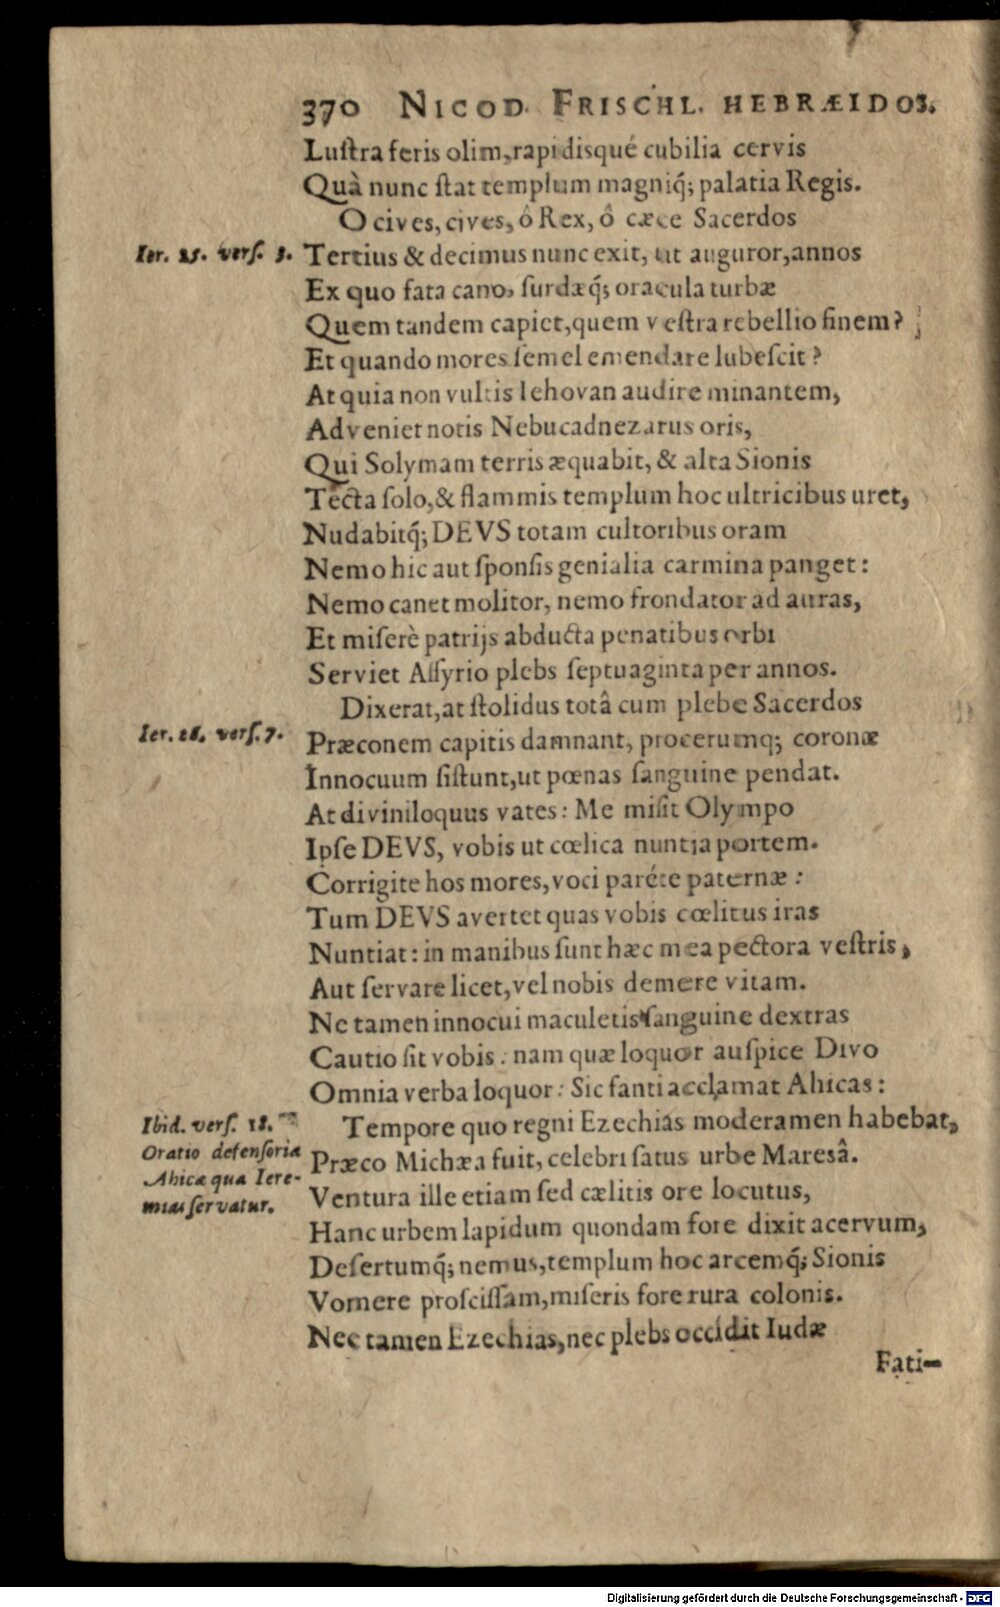 370 NICOD. FRISCHL. HEBRÆIDOS.
Luſtra feris olim, rapidisqué cubilia cervis
Quà nunc ſtat templum magniq́; palatia Regis.
O cives, cives, ô Rex, ô cæce Sacerdos
Ier. 25. verſ. 3. Tertius & decimus nunc exit, ut auguror, annos
Ex quo fata cano, ſurdæq́; oracula turbæ
Quem tandem capiet, quem veſtra rebellio finem?
Et quando mores ſemel emendare lubeſcit?
At quia non vultis Iehovan audire minantem,
Adveniet notis Nebucadnezarus oris,
Qui Solymam terris æquabit, & alta Sionis
Tecta ſolo, & flammis templum hoc ultricibus uret,
Nudabitq́; DEVS totam cultoribus oram
Nemo hic aut ſponſis genialia carmina panget:
Nemo canet molitor, nemo frondator ad auras,
Et miſerè patrijs abducta penatibus orbi
Serviet Aſſyrio plebs ſeptuaginta per annos.
Dixerat, at ſtolidus totâ cum plebe Sacerdos
Ier. 26. verſ. 7. Præconem capitis damnant, procerumq; coronæ
Innocuum ſiſtunt, ut pœnas ſanguine pendat.
At diviniloquus vates: Me miſit Olympo
Ipſe DEVS, vobis ut cœlica nuntia portem.
Corrigite hos mores, voci paréte paternæ:
Tum DEVS avertet quas vobis cœlitus iras
Nuntiat: in manibus ſunt hæc mea pectora veſtris,
Aut ſervare licet, vel nobis demere vitam.
Ne tamen innocui maculetis ſanguine dextras
Cautio ſit vobis: nam quæ loquor auſpice Divo
Omnia verba loquor: Sic fanti acclamat Ahicas:
Ibid. verſ. 18.
Oratio defenſoria
Ahicæ qua Iere-
mias ſervatur.
Tempore quo regni Ezechias moderamen habebat,
Præco Michæa fuit, celebri ſatus urbe Maresâ.
Ventura ille etiam ſed cælitis ore locutus,
Hanc urbem lapidum quondam fore dixit acervum,
Deſertumq́; nemus, templum hoc arcemq́; Sionis
Vomere proſciſſam, miſeris fore rura colonis.
Nec tamen Ezechias, nec plebs occidit Iudæ
Fati-
Digitalisierung gefördert durch die Deutsche Forschungsgemeinschaft - DFG